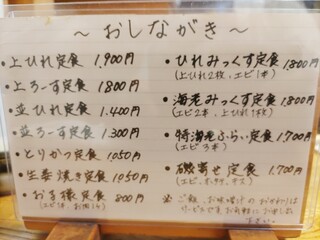 ～おしながき～
・上ひれ定食 1,900円
・上ろーす定食 1800円
・並ひれ定食 1.400円
・並ろーす定食 1.300円
・とりかつ定食 1,050円
・生姜焼き定食 1,050円
・お子様定食 800円
・ひれみっくす定食 1,800円
(上ひれ2枚、エビ1本)
・海老みっくす定食 1,800円
(エビ2本、上ひれ1枚)
・特海老ふらい定食 1,700円
(エビ3本)
・磯寄せ定食 1,700円
※ ご飯、お味噌汁のおかわりは
サービスです お気軽にお申し出
下さい